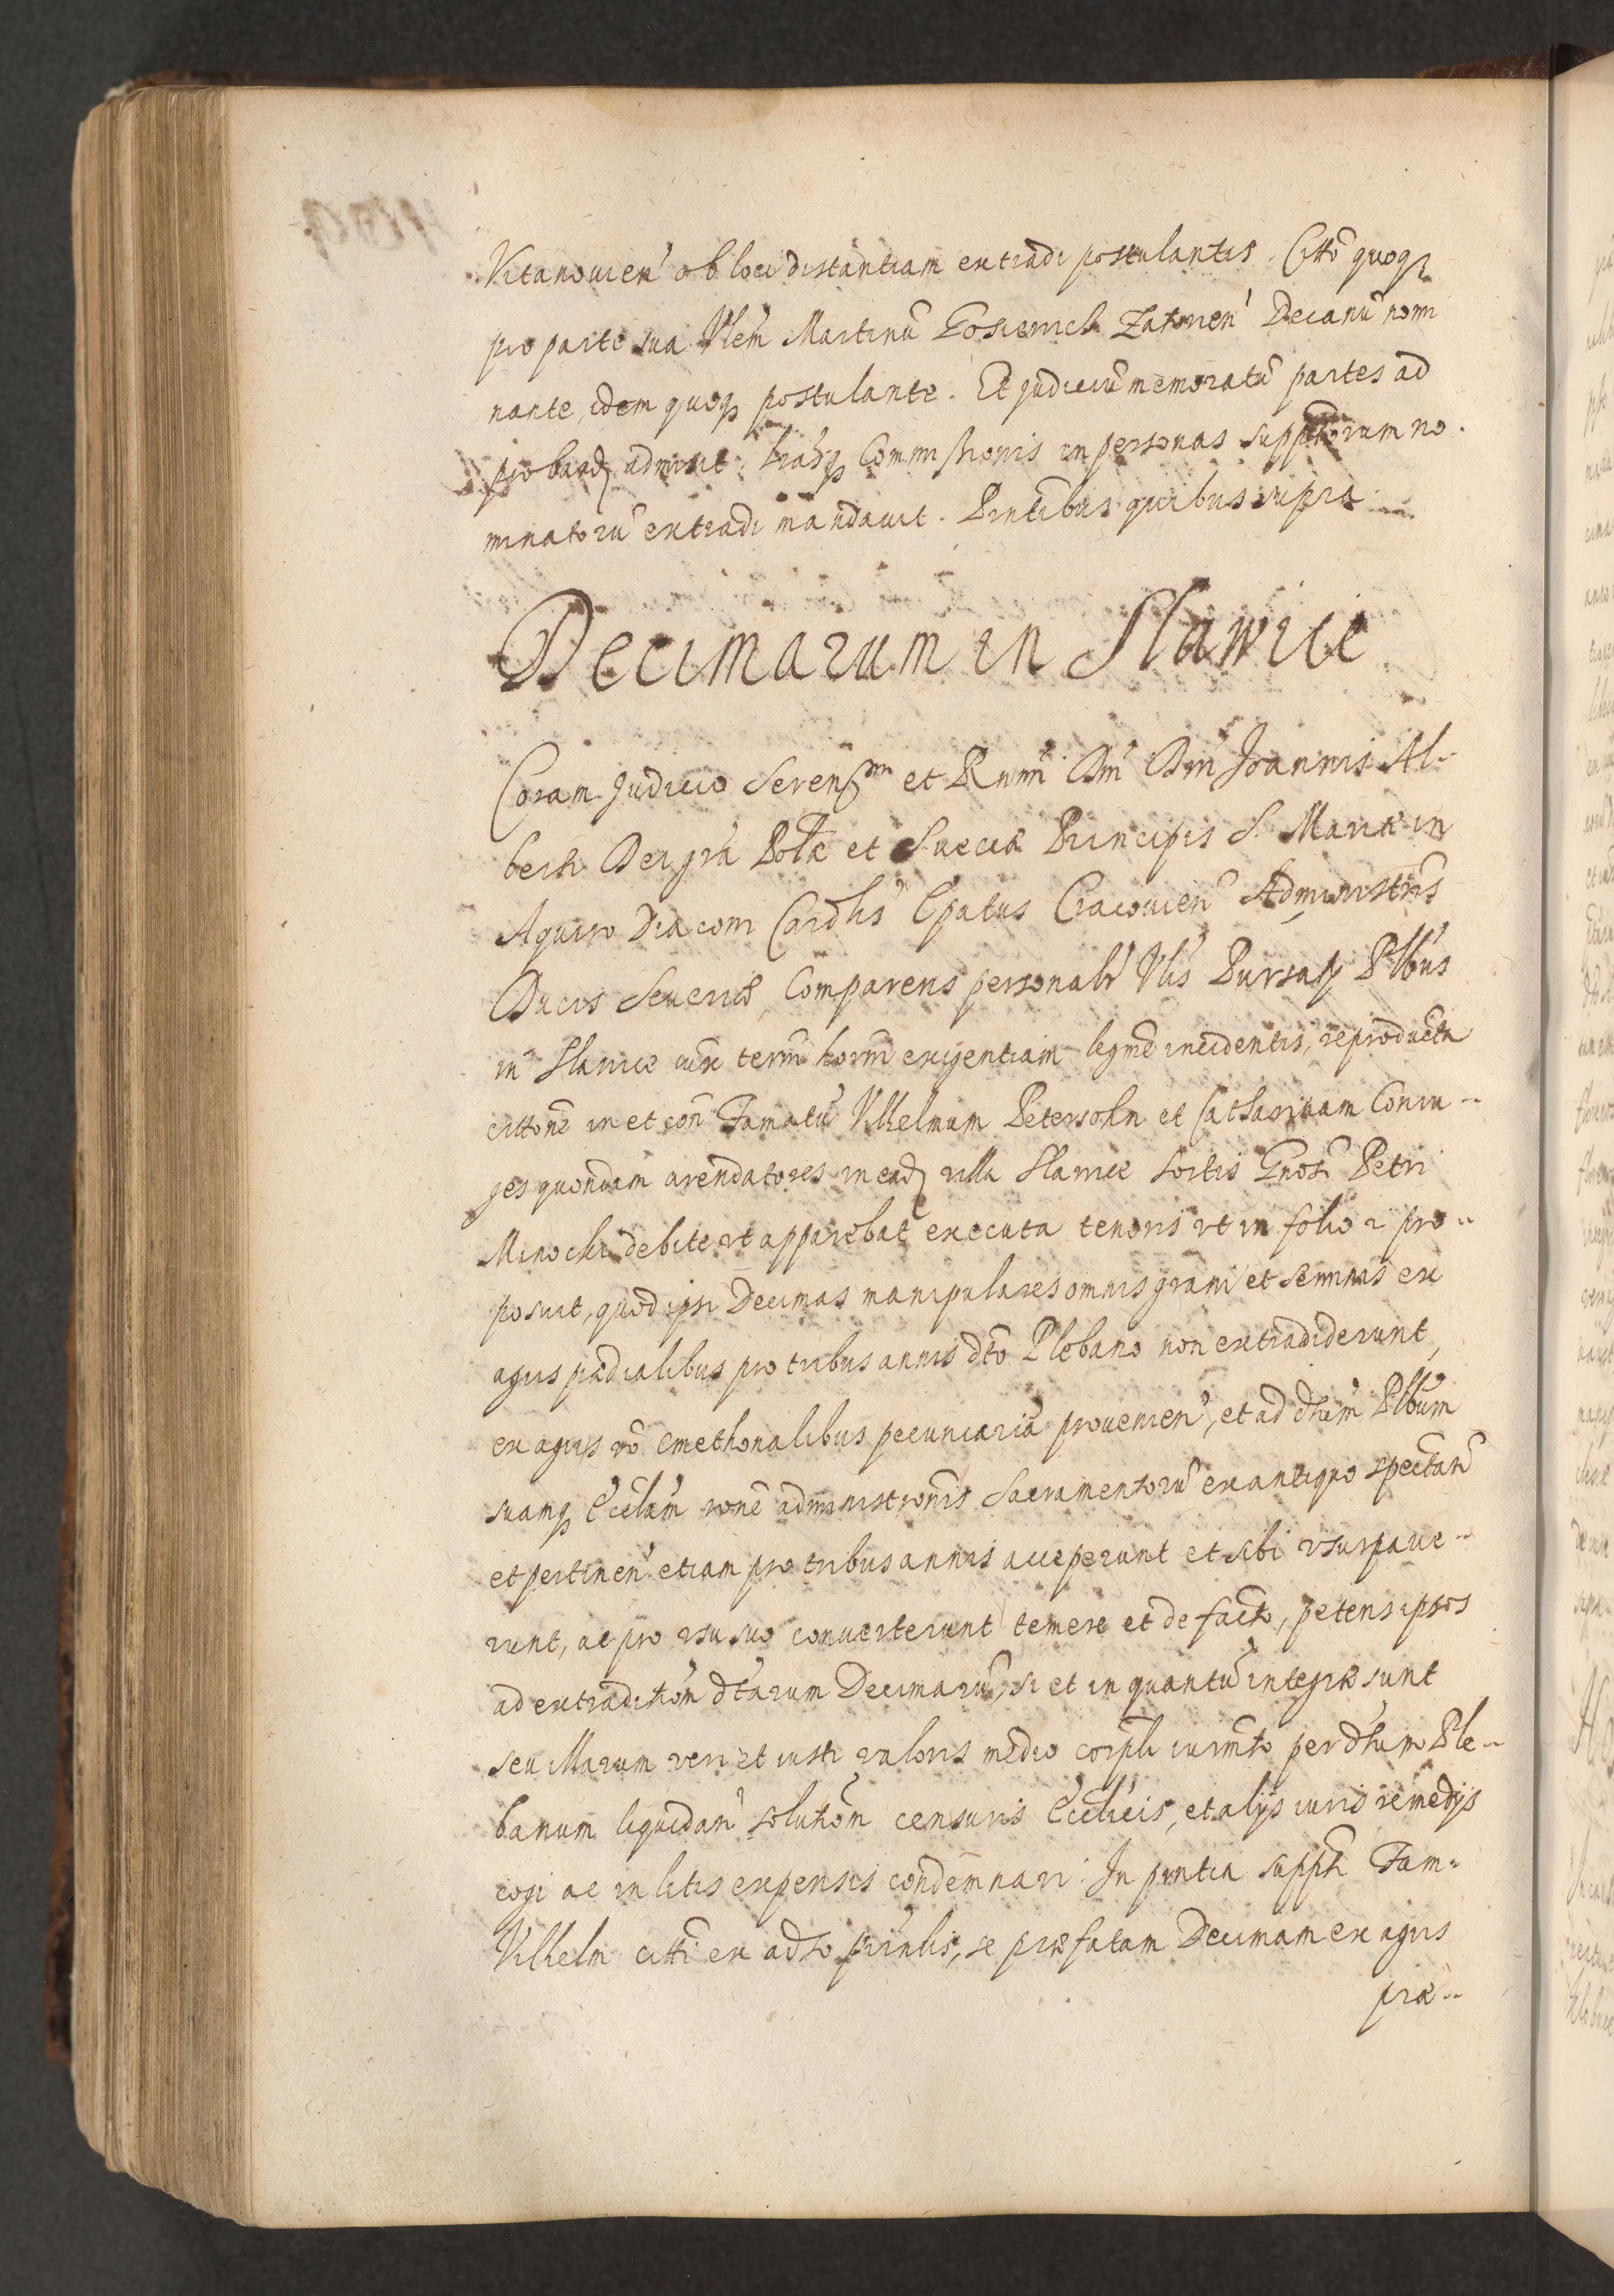 Vitanovien' ob loci distantiam extradi postulantis. Citto quoq
pro parte sua Vlem Martinu Gosiernich Zatorien' Decanu nomi
nante, idem quoq postulante. Et Judiciu memoratu partes ad
proband admisit, lrasq Commissionis in personas supptorum no-
minatoru extradi mandauit. Pntibus quibus supra
Decimarum in Slawice
Coram Judicio Serenssmi et Rnmi Dni Dni Joannis Al-
berti Dei gra Polæ et Sueciæ Principis S. Mariæ in
Aquiro Diaconi Cardlis Epatus Cracovien' Administris
Ducis Seueriæ, Comparens personalr Vlis Bursaly Plbus
in Slawice vim term horm exigentiam legme incidentis, reproducta
cittone in et con Famatu Vilhelmum Petersohn et Catharinam Coniu-
ges quondam arendatores in ead villa Slawice sortis Gnosi Petri
Minocki debite vt apparebat executa tenoris vt in folio 2 pro-
posuit, quod ipsi Decimas manipulares omnis grani et seminis ex
agris prædialibus pro tribus annis dto Plebano non extradiderunt,
ex agris vo cmethonalibus pecuniaria prouenien', et ad dtum Plbum
suamq Ecclam rone administronis Sacramentoru ex antiquo spectan'
et pertinen' etiam pro tribus annis acceperunt et sibi vsurpaue-
runt, ac pro vsu suo conuerterunt temere et de facto, petens ipsos
ad extraditiom dtarum Decimaru, si et in quantu integræ sunt
seu illarum veri et iusti valoris medio corpli iurmto per dtum Ple-
banum liquidan' solutiom censuris Eccliacis, et alijs iuris remedijs
cogi ac in litis expensis condemnari. In pntia suppti Fam-
Vilhelm citti ex adso prinlis, se præfatam Decimam ex agris
præ-